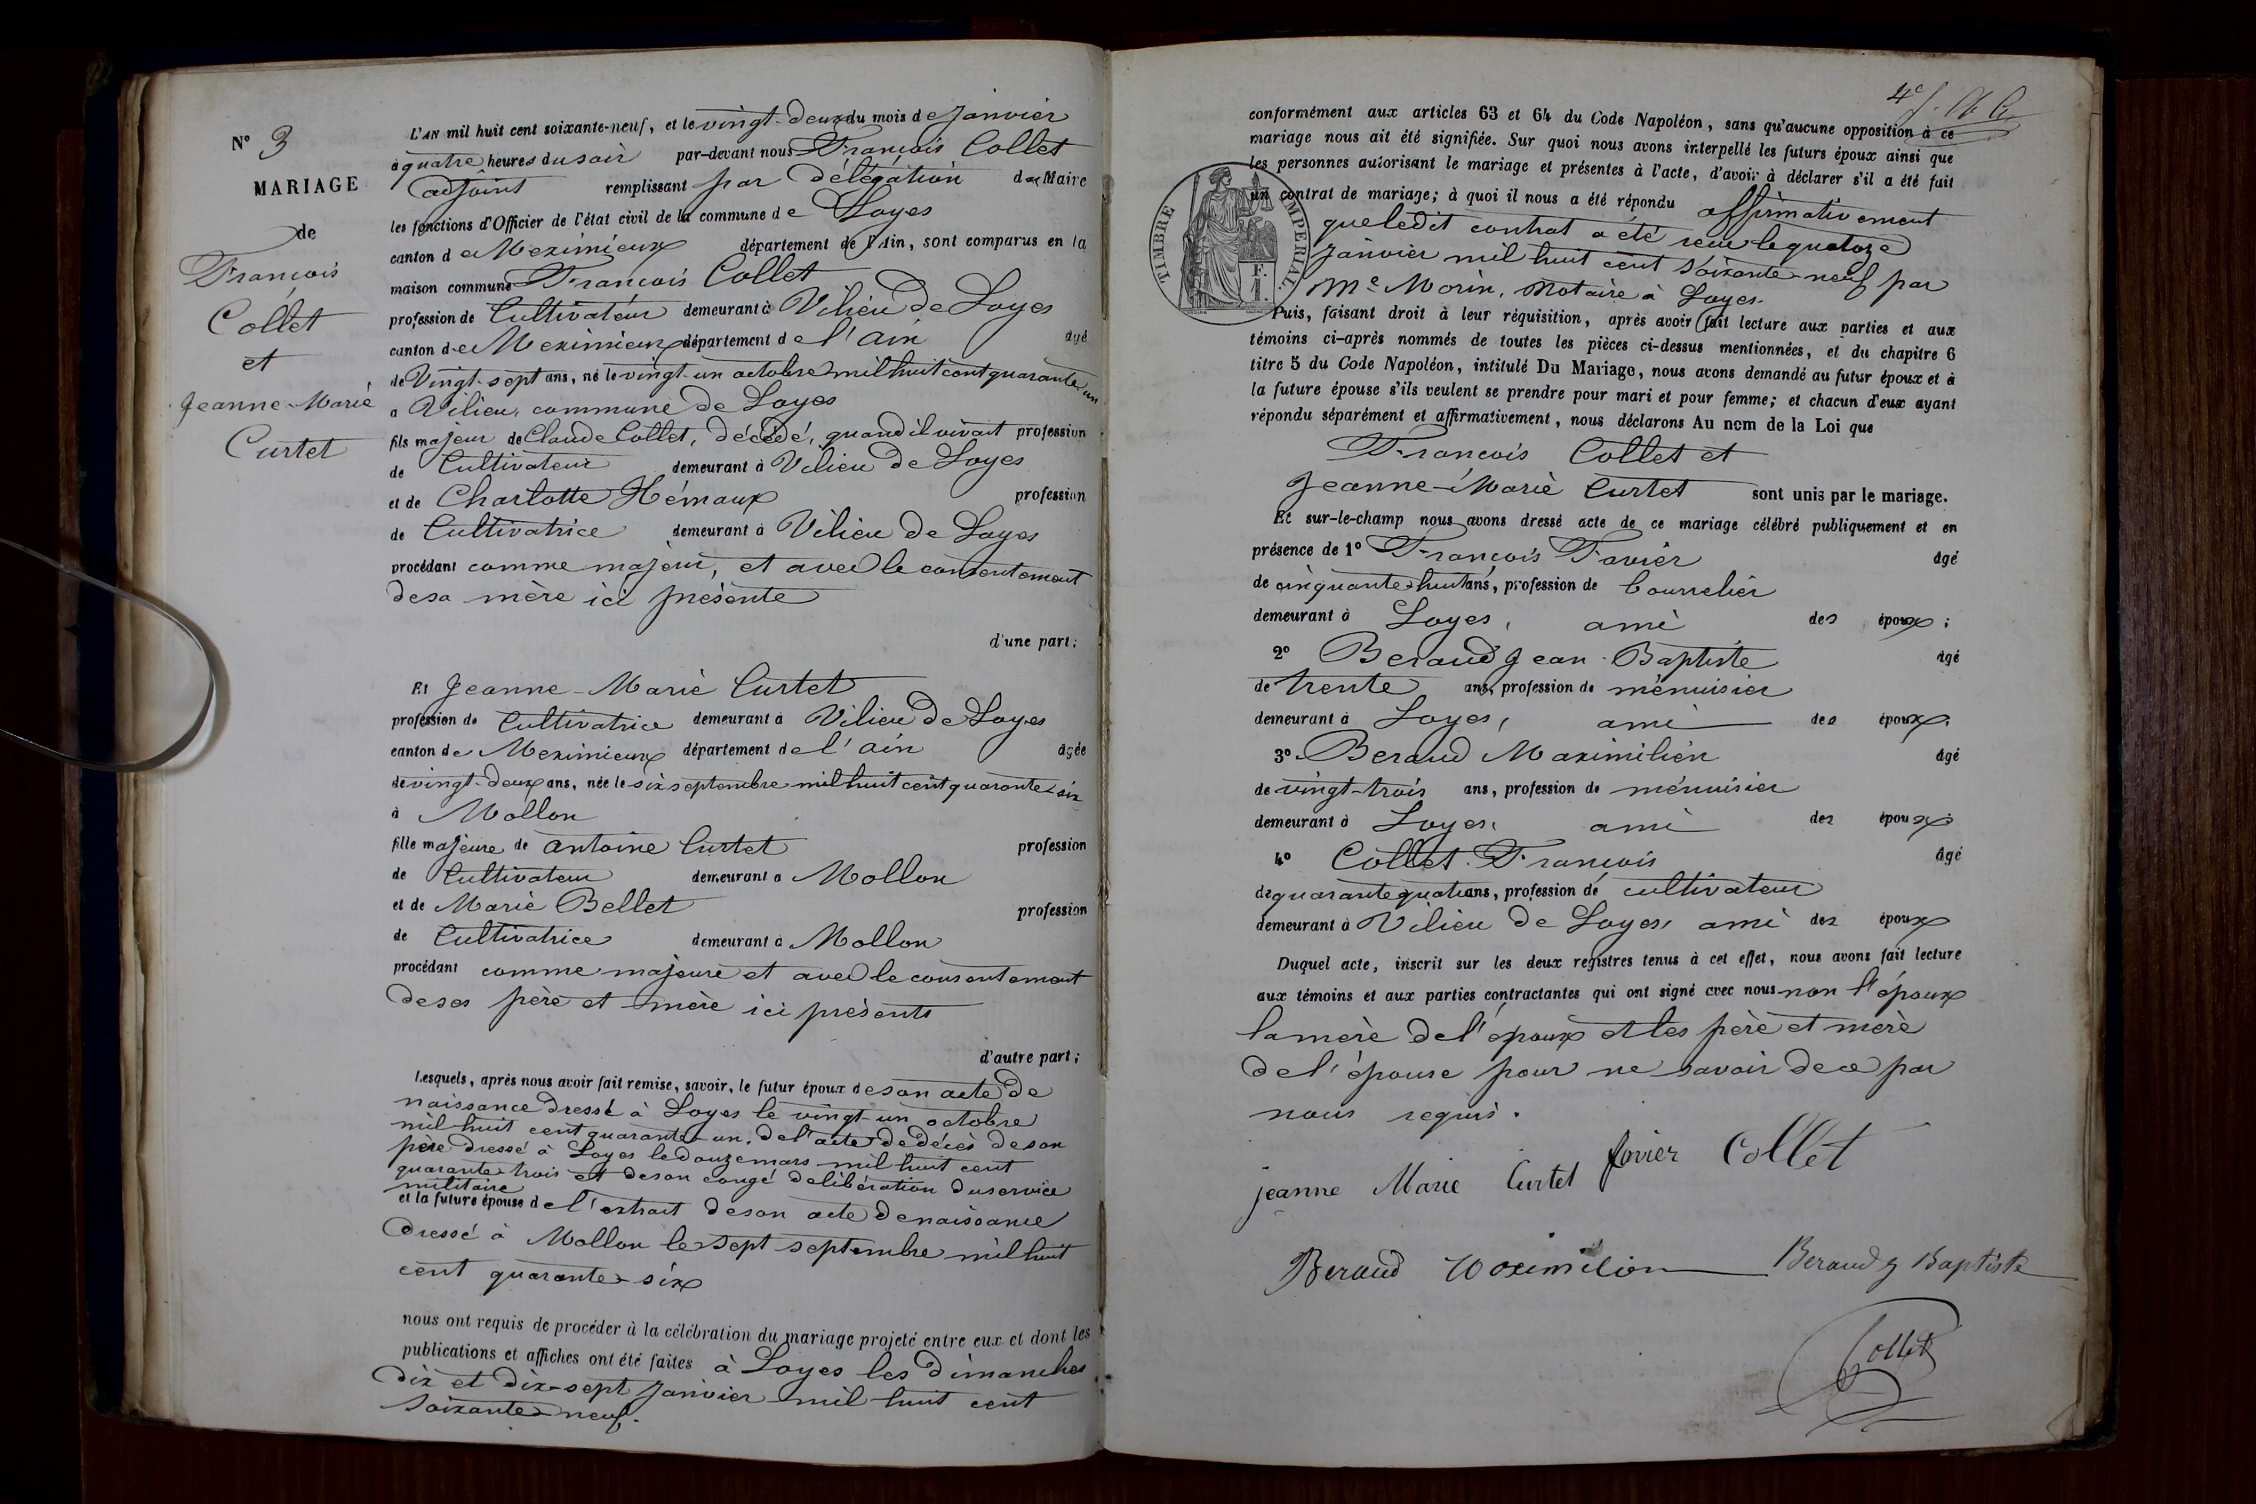 N° 3
MARIAGE
de
François
Collet
et
Jeanne-Marie
Curtet
L'AN mil huit cent soixante-neuf, et le vingt-deux du mois de Janvier
à quatre heures du soir par-devant nous François Collet
adjoint remplissant par délégation du Maire
les fonctions d'Officier de l'état civil de la commune de Loyes
canton de Meximieux département de l'Ain, sont comparus en la
maison commune François Collet
profession de Cultivateur demeurant à Vilieu de Loyes
canton de Meximieux département de l'ain âgé
de Vingt-sept ans, né le vingt-un octobre mil huit cent quarante un
à Vilieu, commune de Loyes
fils majeur de Claude Collet, décédé, quand il vivait profession
de Cultivateur demeurant à Vilieu de Loyes
et de Charlotte Hémaux profession
de Cultivatrice demeurant à Vilieu de Loyes
procédant comme majeur, et avec le consentement
de sa mère ici présente
d'une part;
Et Jeanne-Marie Curtet
profession de Cultivatrice demeurant à Vilieu de Loyes
canton de Meximieux département de l'ain âgée
de vingt-deux ans, née le six septembre mil huit cent quarante-six
à Mollon
fille majeure de antoine Curtet profession
de Cultivateur demeurant à Mollon
et de Marie Bellet profession
de Cultivatrice demeurant à Mollon
procédant comme majeure et avec le consentement
de ses père et mère ici présents
d'autre part;
Lesquels, après nous avoir fait remise, savoir, le futur époux de son acte de
naissance dressé à Loyes le vingt-un octobre
mil huit cent quarante-un, de l'acte de décès de son
père dressé à Loyes le douze mars mil huit cent
quarante-trois et de son congé de libération du service
militaire
et la future épouse de l'extrait de son acte de naissance
dressé à Mollon le sept septembre mil huit
cent quarante-six
nous ont requis de procéder à la célébration du mariage projeté entre eux et dont les
publications et affiches ont été faites à Loyes les dimanches
dix et dix-sept Janvier mil huit cent
soixante-neuf.
conformément aux articles 63 et 64 du Code Napoléon, sans qu'aucune opposition à ce
mariage nous ait été signifiée. Sur quoi nous avons interpellé les futurs époux ainsi que
les personnes autorisant le mariage et présentes à l'acte, d'avoir à déclarer s'il a été fait
un contrat de mariage; à quoi il nous a été répondu affirmativement
que ledit contrat a été reçu le quatorze
Janvier mil huit cent soixante-neuf par
Me Morin, Notaire à Loyes.
TIMBRE IMPERIAL
Puis, faisant droit à leur réquisition, après avoir fait lecture aux parties et aux
témoins ci-après nommés de toutes les pièces ci-dessus mentionnées, et du chapitre 6
titre 5 du Code Napoléon, intitulé Du Mariage, nous avons demandé au futur époux et à
la future épouse s'ils veulent se prendre pour mari et pour femme; et chacun d'eux ayant
répondu séparément et affirmativement, nous déclarons Au nom de la Loi que
François Collet et
Jeanne-Marie Curtet sont unis par le mariage.
Et sur-le-champ nous avons dressé acte de ce mariage célébré publiquement et en
présence de 1° François Favier âgé
de cinquante-huit ans, profession de bourrelier
demeurant à Loyes, ami des époux;
2° Beraud Jean-Baptiste âgé
de trente ans, profession de ménuisier
demeurant à Loyes, ami des époux;
3° Beraud Maximilien âgé
de vingt-trois ans, profession de ménuisier
demeurant à Loyes, ami des époux;
4° Collet François âgé
de quarante quatre ans, profession de cultivateur
demeurant à Vilieu de Loyes, ami des époux
Duquel acte, inscrit sur les deux registres tenus à cet effet, nous avons fait lecture
aux témoins et aux parties contractantes qui ont signé avec nous non l'époux
la mère de l'époux et les père et mère
de l'épouse pour ne savoir de ce par
nous requis.
favier Collet
jeanne Marie Curtet
Beraud Maximilien Beraud J Baptiste
Collet